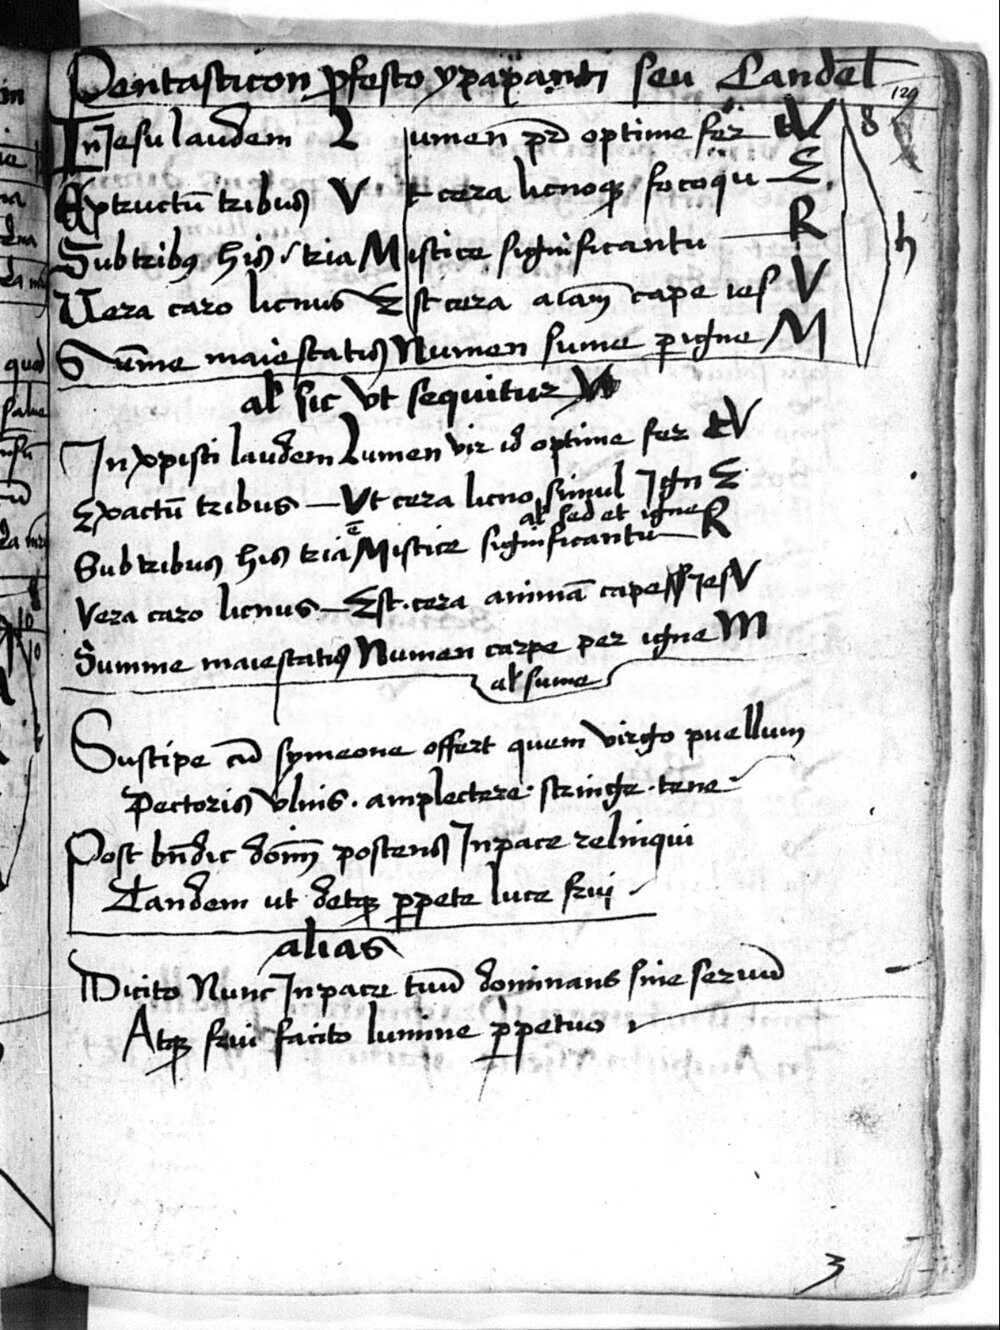 Pentasticon ꝓfesto ypapanti seu Candel̄
129
In Jesu laudem L umen pr̄ optime fer tV
Exptructū tribus V t cera licnoqꝫ focoqu E
Subtribꝫ his tria M istice significantu R
Uera caro licnus E st cera aīam cape ies V
Sūme maiestatis Numen sume ꝑ igne M
8
h
al̄ sic ut sequitur
In xpisti laudem Lumen vir id optime fer tV
Exactū tribus Ut cera licno simul Ign E
al̄ sed et igne
Subtribus his tria Mistice significantu R
Vera caro licnus Est cera animā cape JesV
Summe maiestatis Numen carpe per igne M
al̄ sume
Suscipe cū symeone offert quem virgo puellum
Pectoris vlnis. amplectere. stringe. tene
Post bn̄dic dōm postens Inpace relinqui
Tandem ut detqꝫ ꝑpete luce frui
alias
Dicito Nunc Inpace tuū dominans sine seruū
Atqꝫ frui facito lumine ꝑpetuo
3